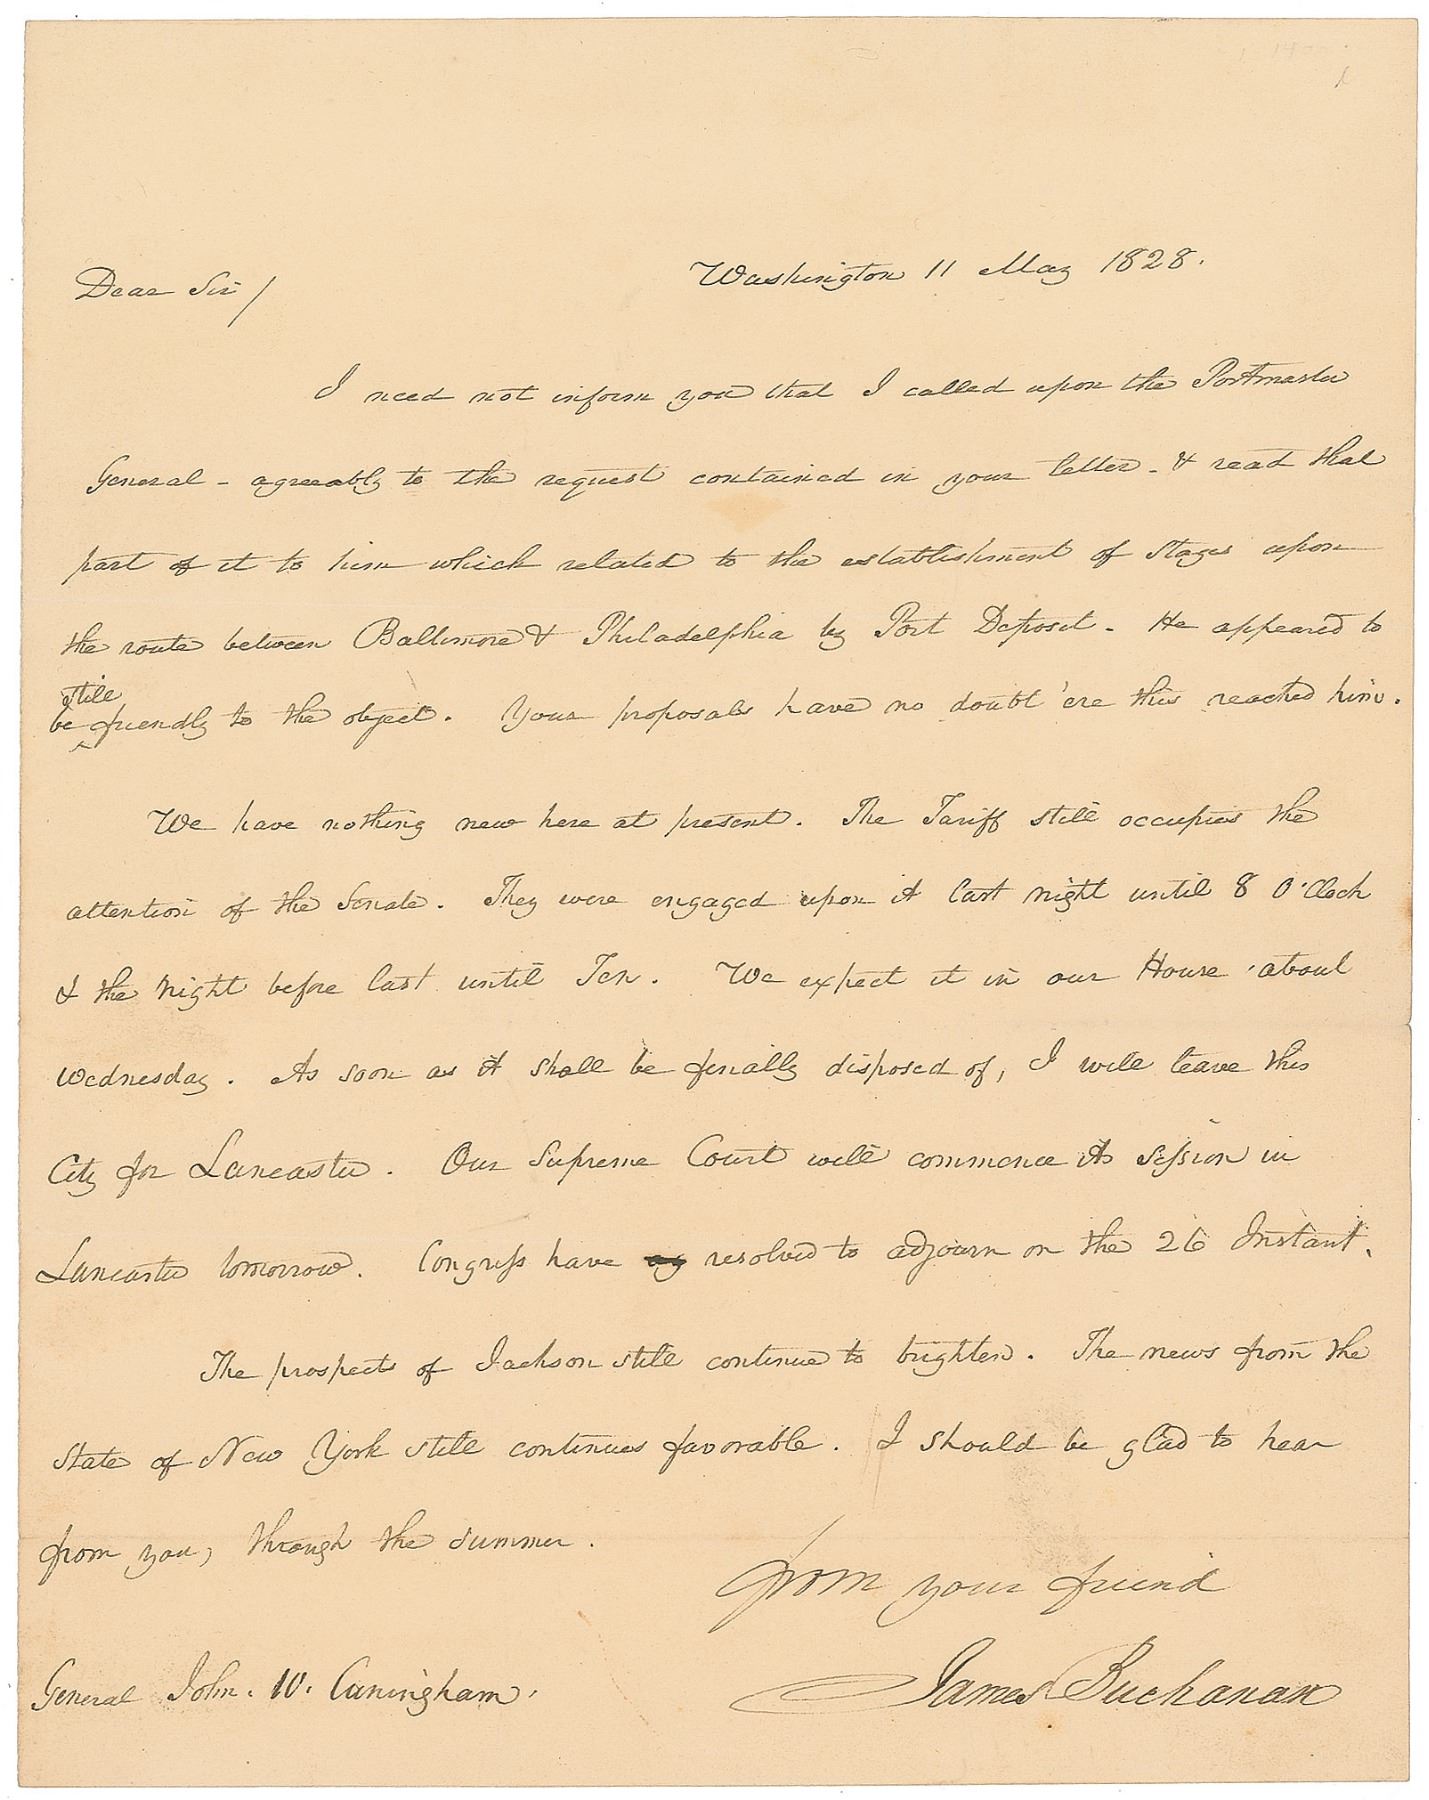 Washington 11 May 1828.
Dear Sir/
I need not inform you that I called upon the Postmaster
General - agreeably to the request contained in your letter - & read that
part of it to him which related to the establishment of Stages upon
the route between Baltimore & Philadelphia by Port Deposit - He appeared to
still
be friendly to the object. Your proposals have no doubt 'ere this reached him.
We have nothing new here at present. The Tariff still occupies the
attention of the Senate. They were engaged upon it last night until 8 O'Clock
& the night before last until Ten. We expect it in our House about
Wednesday. As soon as it shall be finally disposed of, I will leave this
City for Lancaster. Our Supreme Court will commence its Session in
Lancaster tomorrow. Congress have ag resolved to adjourn on the 26 Instant.
The prospects of Jackson still continue to brighten. The news from the
State of New York still continues favorable. I should be glad to hear
from you, through the summer.
from your friend
James Buchanan
General John. W. Cuningham.